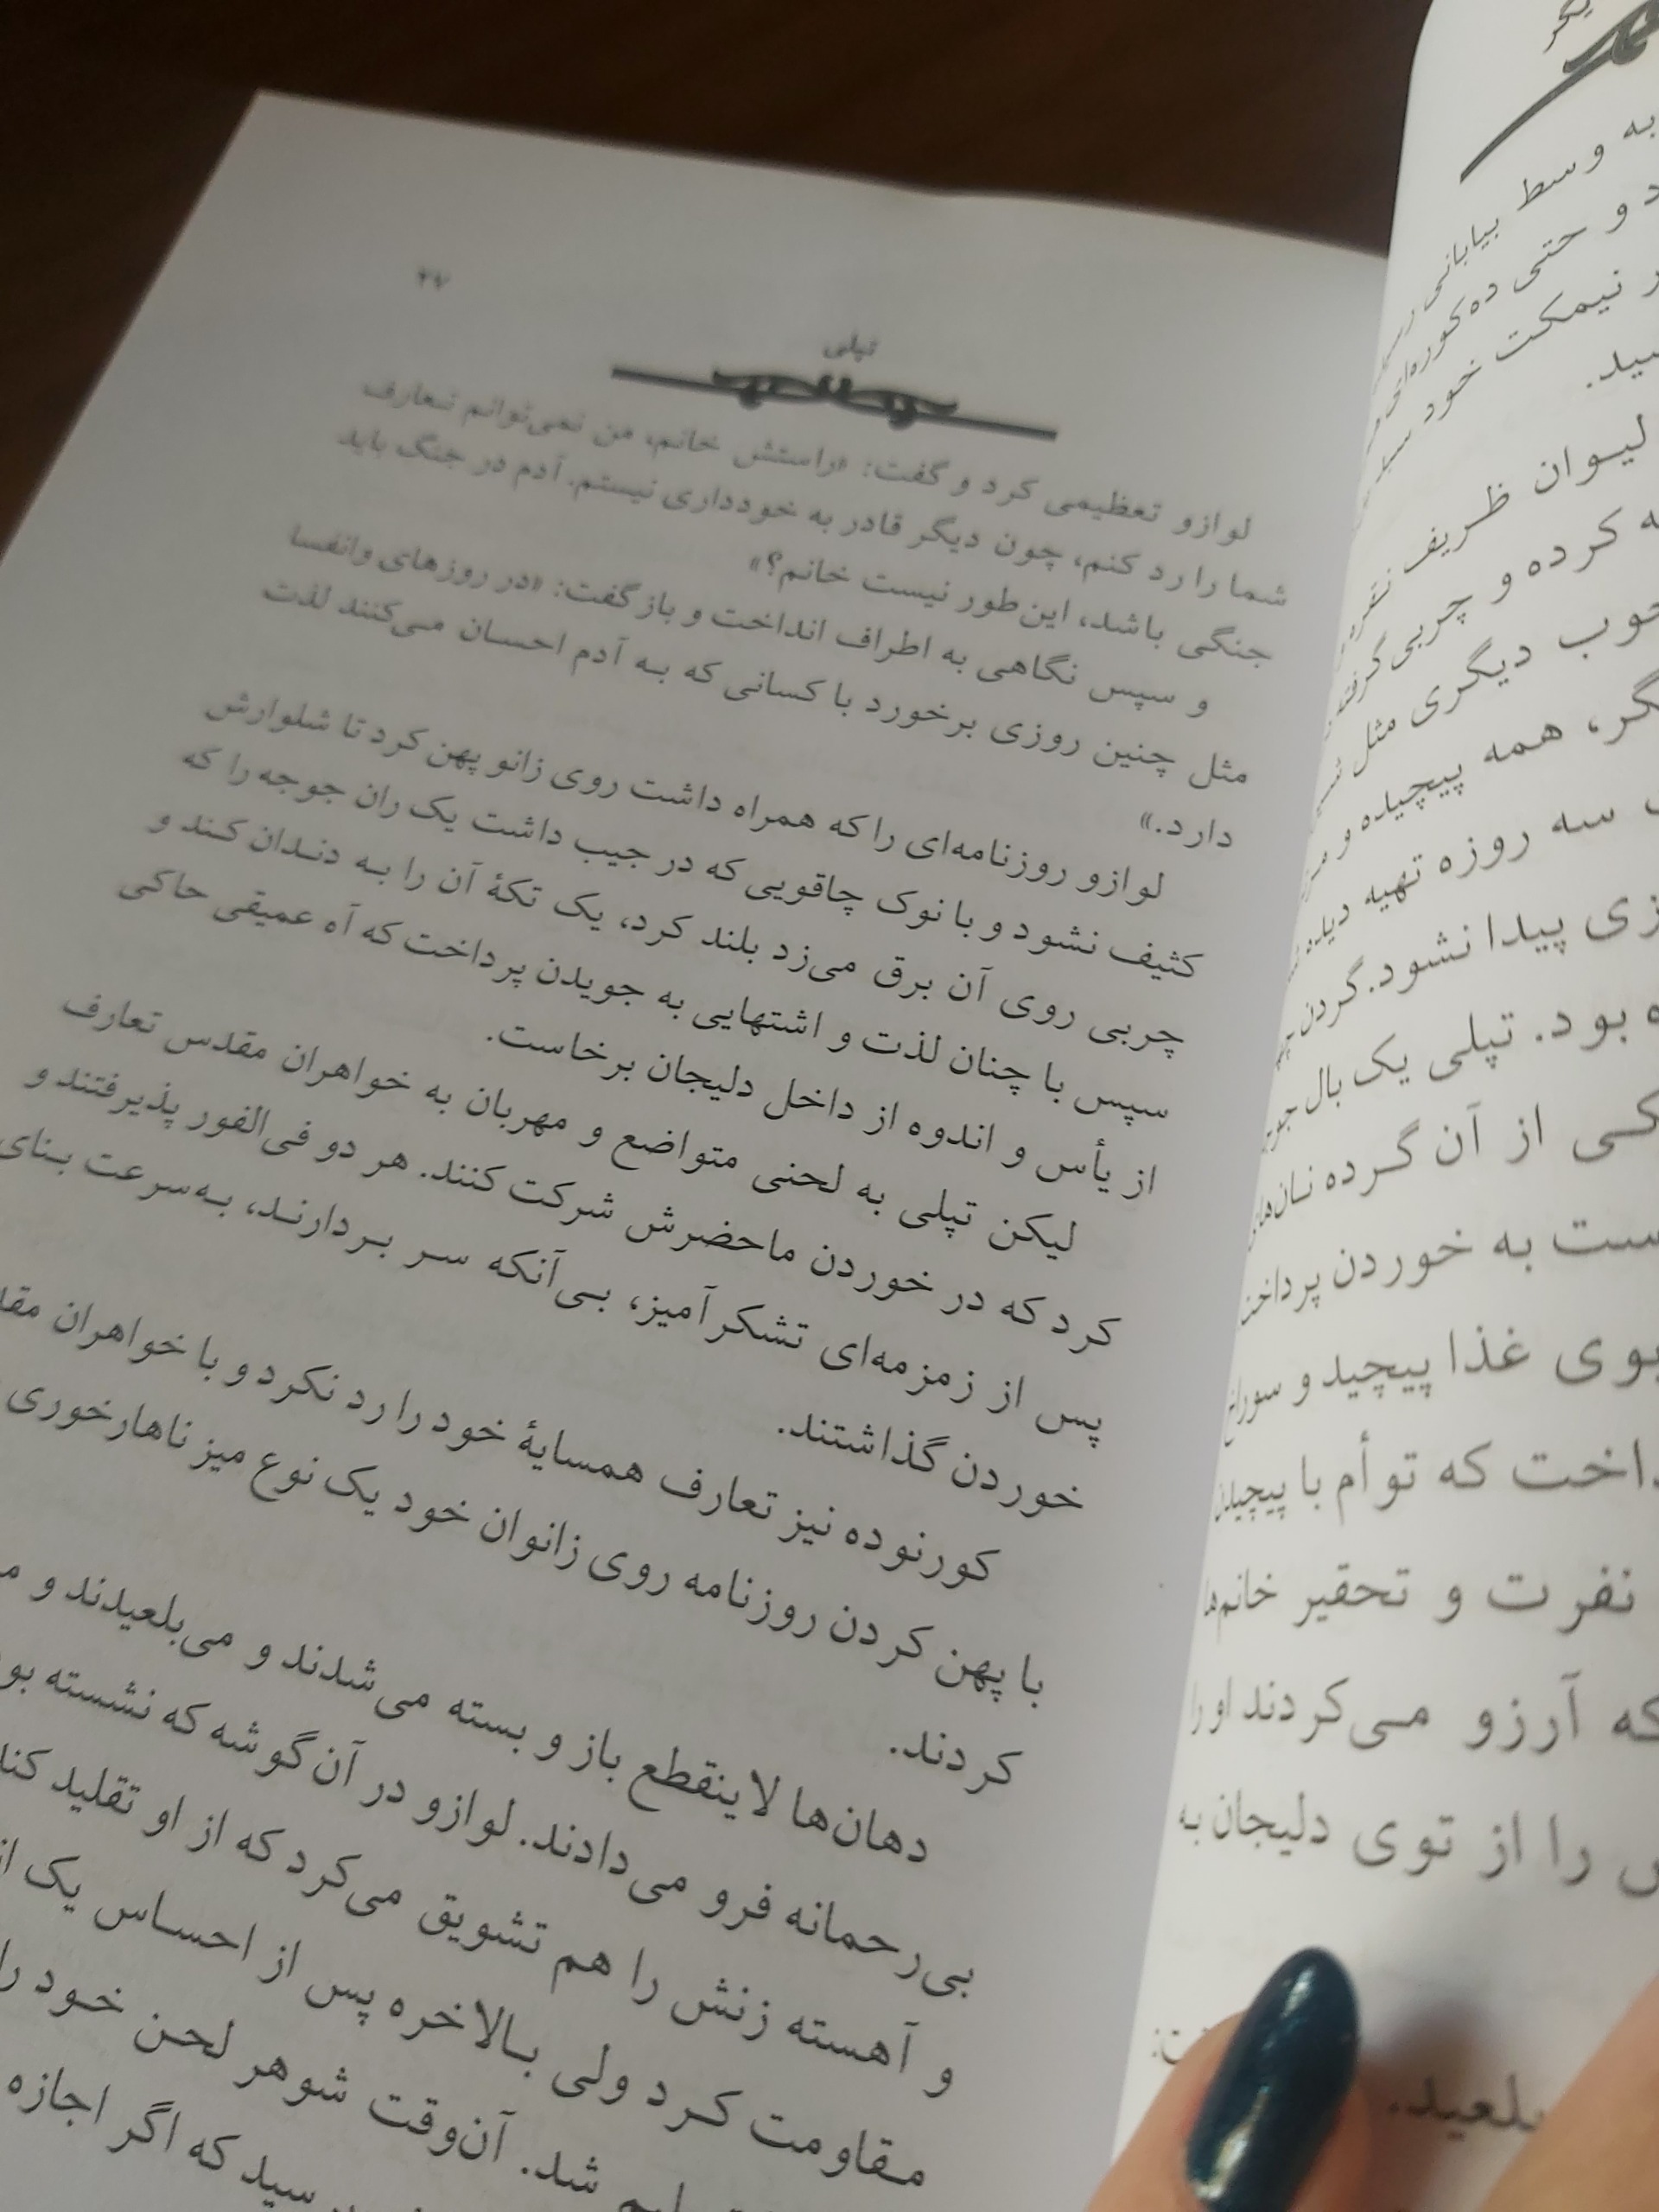 یگر
به وسط بیابانی
د و حتی ده‌کوره‌ای
ر نیمکت خود
سید.
لیوان ظریف
ه کرده و چربی گرفته
خوب دیگری مثل
گر، همه پیچیده و
سه روزه تهیه دیده
زی پیدا نشود. گردن
ه بود. تپلی یک بال
کی از آن گرده نان‌های
ست به خوردن پرداخت
بوی غذا پیچید و
داخت که توأم با
نفرت و تحقیر خانم‌ها
که آرزو می‌کردند او را
را از توی دلیجان به
بلعید.
۲۷
تپلی
لوازو تعظیمی کرد و گفت: «راستش خانم، من نمی‌توانم تعارف
شما را رد کنم، چون دیگر قادر به خودداری نیستم. آدم در جنگ باید
جنگی باشد، این‌طور نیست خانم؟»
و سپس نگاهی به اطراف انداخت و باز گفت: «در روزهای وانفسا
مثل چنین روزی برخورد با کسانی که به آدم احسان می‌کنند لذت
دارد.»
لوازو روزنامه‌ای را که همراه داشت روی زانو پهن کرد تا شلوارش
کثیف نشود و با نوک چاقویی که در جیب داشت یک ران جوجه را که
چربی روی آن برق می‌زد بلند کرد، یک تکهٔ آن را به دندان کند و
سپس با چنان لذت و اشتهایی به جویدن پرداخت که آه عمیقی حاکی
از یأس و اندوه از داخل دلیجان برخاست.
لیکن تپلی به لحنی متواضع و مهربان به خواهران مقدس تعارف
کرد که در خوردن ماحضرش شرکت کنند. هر دو فی‌الفور پذیرفتند و
پس از زمزمه‌ای تشکرآمیز، بی‌آنکه سر بردارند، به‌سرعت بنای
خوردن گذاشتند.
کورنوده نیز تعارف همسایهٔ خود را رد نکرد و با خواهران
با پهن کردن روزنامه روی زانوان خود یک نوع میز ناهارخوری
کردند.
دهان‌ها لاینقطع باز و بسته می‌شدند و می‌بلعیدند و
بی‌رحمانه فرو می‌دادند. لوازو در آن گوشه که نشسته
و آهسته زنش را هم تشویق می‌کرد که از او تقلید
مقاومت کرد ولی بالاخره پس از احساس یک
شد. آن‌وقت شوهر لحن خود را
که اگر اجازه